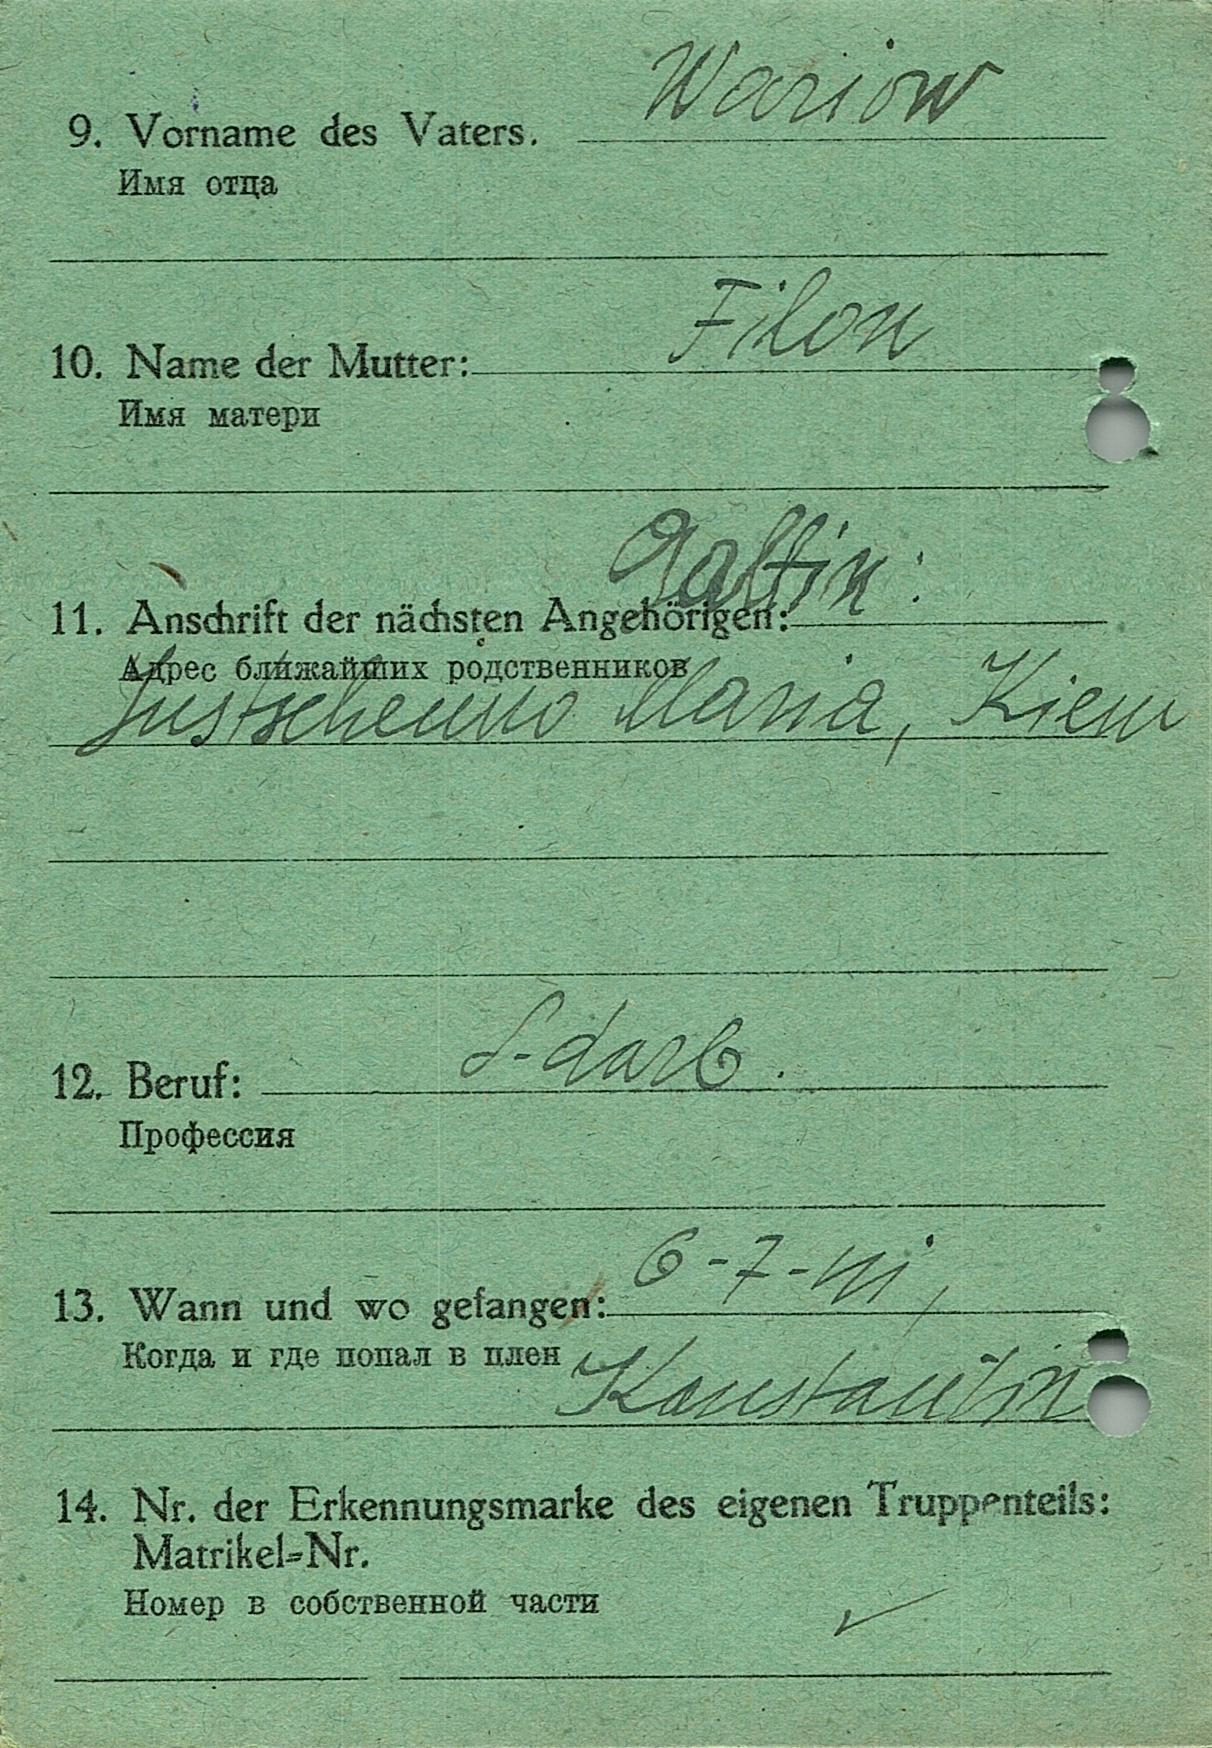 Wariow
9. Vorname des Vaters.
Имя отца
Filon
10. Name der Mutter:
Имя матери
Gattin:
11. Anschrift der nächsten Angehörigen:
Адрес ближайших родственников
Maria, Kiew
12. Beruf:
Профессия
6-7-41,
13. Wann und wo gefangen:
Когда и где попал в плен
Konstantin
14. Nr. der Erkennungsmarke des eigenen Truppenteils:
Matrikel-Nr.
Номер в собственной части